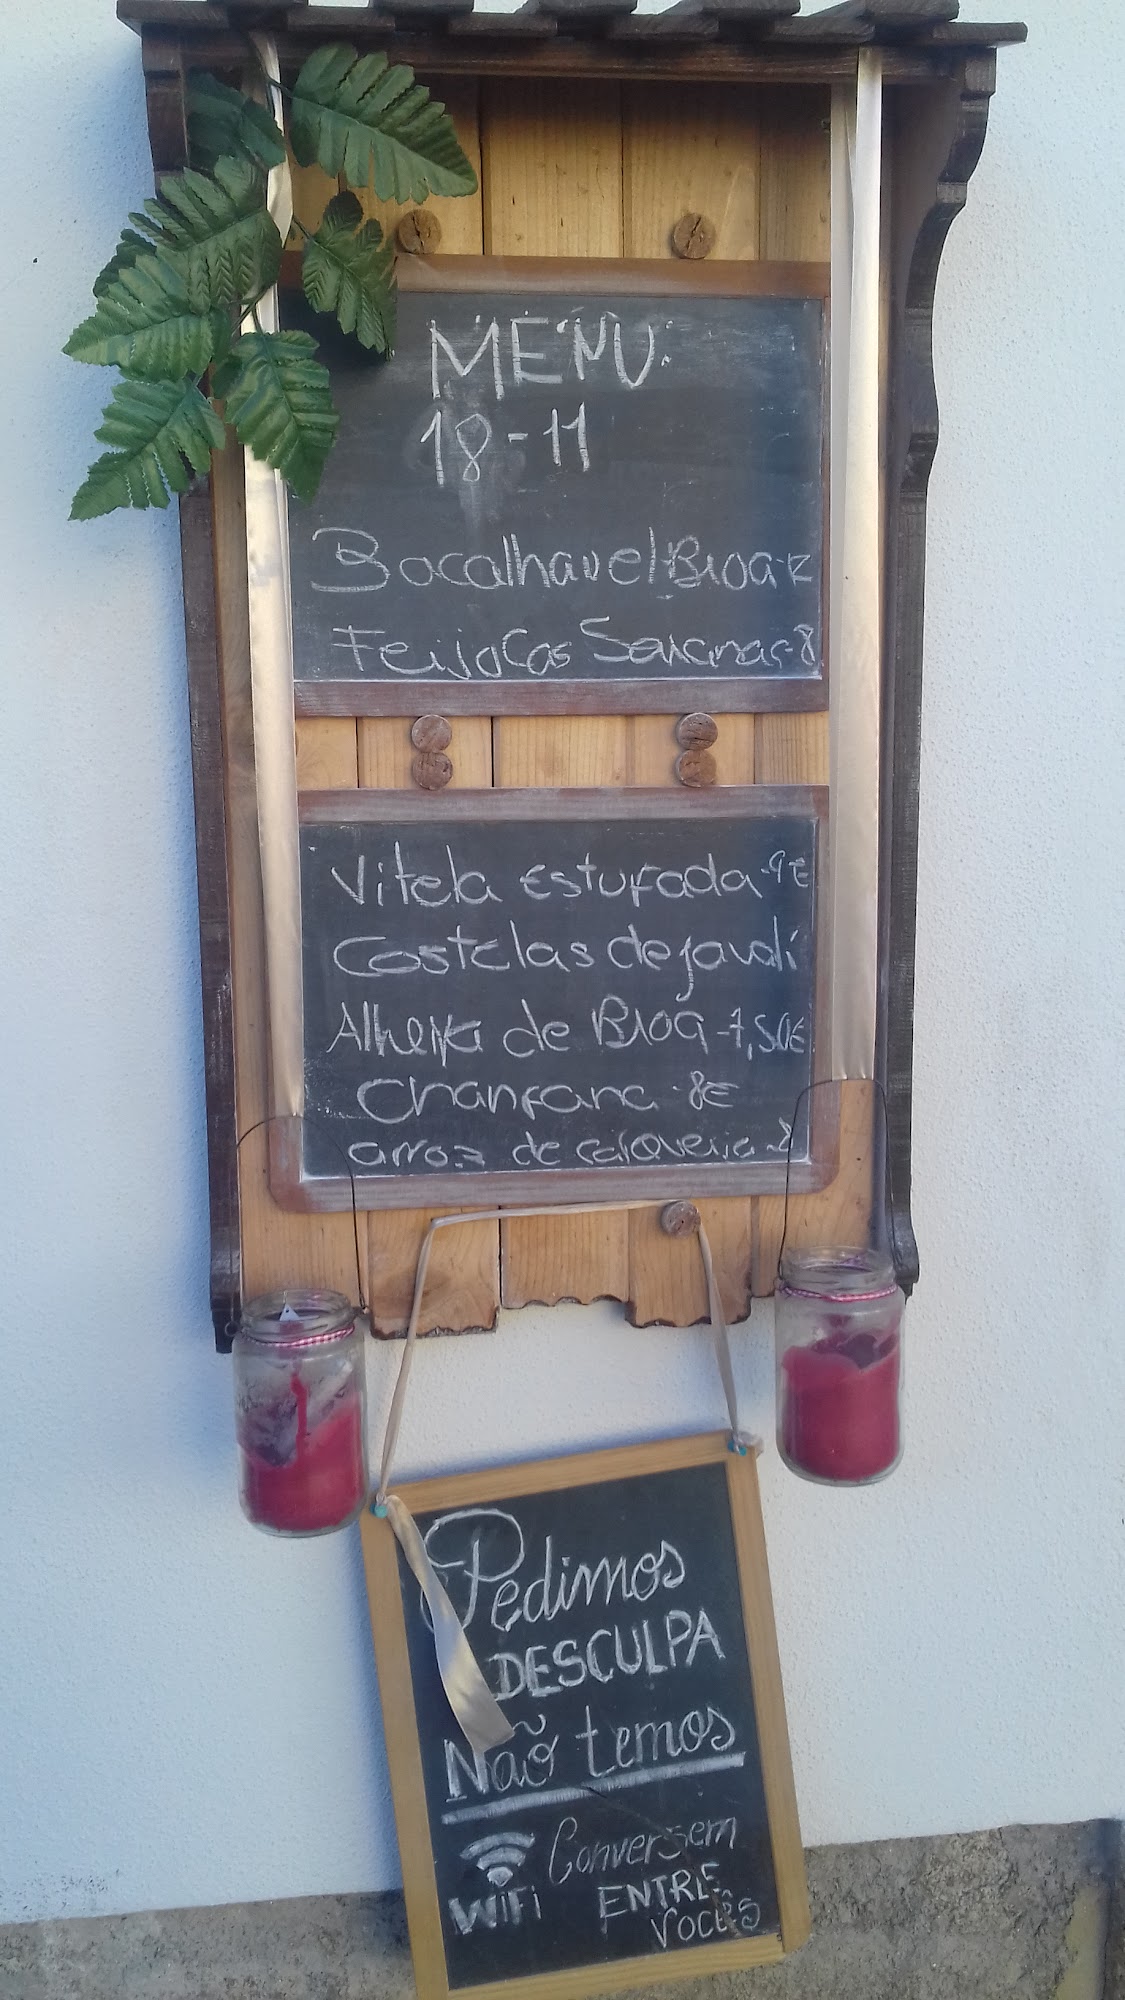 MENU:
18-11
Bacalhau el Broa-
Feijocas Serranas-8
Vitela Estufada-9€
Costelas de javali
Alheira de Broa-7,50€
Chanfana-8€
arroz de carqueija-8
Pedimos
DESCULPA
Não temos
WiFi Conversem
ENTRE
VOCÊS